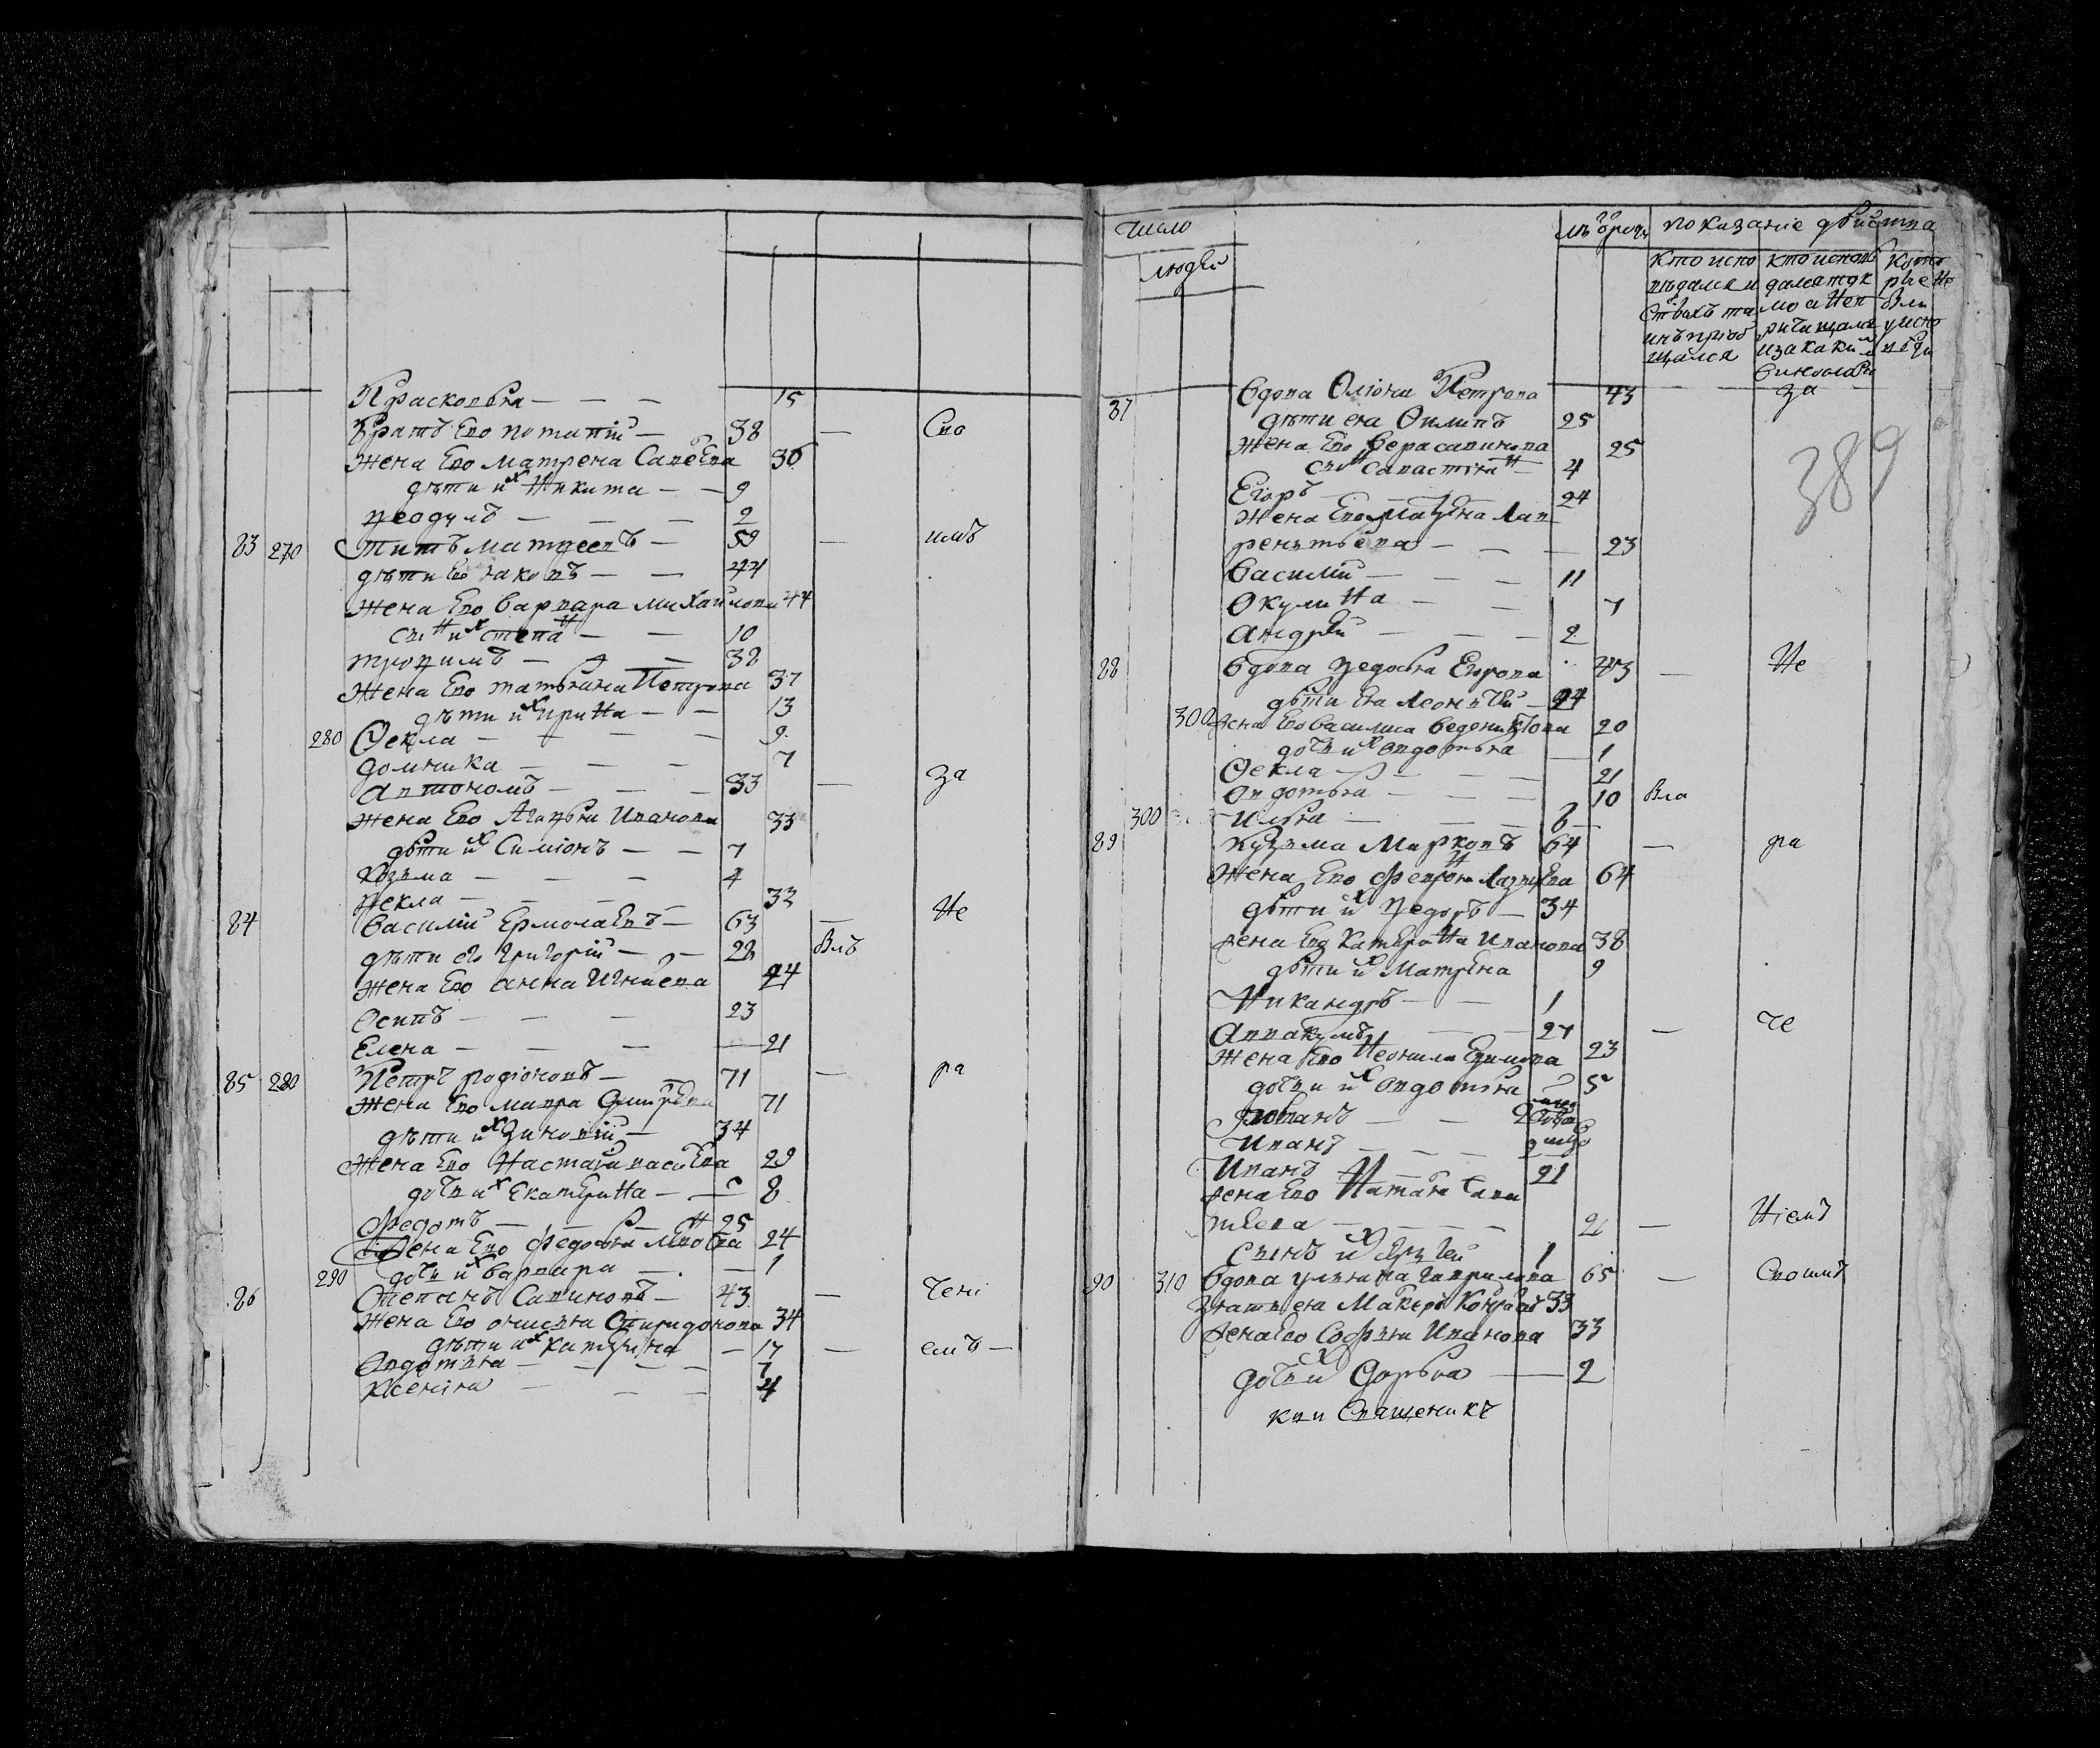 Прасковья — — — 15
Братъ Ево потапий — 38 — Сво
Жена Ево матрена Савѣева 36
дѣти их Никита — — 9
федулъ — — — 2
83 270 Титъ матфеевъ — 59 — имъ
дѣти Ево Яковъ — — 44
Жена Ево варвара михайлова 44
снъ их степа — — 10
трофимъ — — — 38
Жена Ево татьяна Петрова 37
дѣти их ирина — — 13
280 Фекла — — — 9
домника — — — 7
автономъ — — — 33 — за
жена Ево Агафья Иванова 33
дѣти их Симіонъ — — 7
Козьма — — — 4
фекла — — — 32
84 Василій ЕрмолаЕвъ — 63 — Не
дѣти его григорій — — 28 Влъ
Жена Ево анна Игнаева 24
Осипъ — — — 23
Елена — — — 21
85 280 Петръ родіоновъ — 71 — ра
Жена Ево мавра 71
дѣти их Зиновій — 34
Жена Ево Настасія 29
дочь их Екатерина — — 8
Федотъ — — — 25
жена Ево федосья 24
290 дочь их варвара — — 1
86 Степанъ Савиновъ — 43 — чені
Жена Ево анисья Спиридонова 34
дѣти их катерина — 17 — емъ —
Овдотья — — — 7
Ксенія — — — 4
число
людей
лѣ отрочь
показаніе дѣйства
кто испо
вѣдался и
Стыхъ та
инъ приоб
щался
кто исповѣ
дался ток
мо а Неп
ричащался
изакаким
винословіе
Кото
рые Не
Бли
у испо
вѣди
389
87 Вдова Олiона Петрова 43 за
дѣти ея Филипъ 25
Жена Ево Вера савинова 25
снъ Савастіан 4
Егоръ — 24
Жена Ево Лав
рентьева — — — 23
Василій — — — 11
Окулина — — 7
андрей — — — 2
88 Вдова федосья Егорова 43 — Не
дѣти ея Леонтей — 24
300 Жена Ево василиса веденктова 20
дочь их овдотья — 1
Фекла — — — 21
Овдотья — — — 10 Вла
300 Илья — — — 6
89 Кузьма Марковъ 64 — ра
Жена Ево 64
дѣти их федоръ — 34
Жена Ево Катерина Иванова 38
дѣти их Матрена 9
Никандръ — — 1
Аввакумъ — — 27 — че
Жена Ево Неонила Ефимова 23
дочь их овдотья 5
Иванъ — — —
Иванъ — 21
жена Ево Наталья Сав
— — — 21 — Ніемъ
Сынъ их 1
90 310 Вдова ульяна гаврилова 65 — Своимъ
Зять ея Макеръ 33
Жена Ево Софья Иванова 33
дочь их Дарья — 2
кви Священикъ